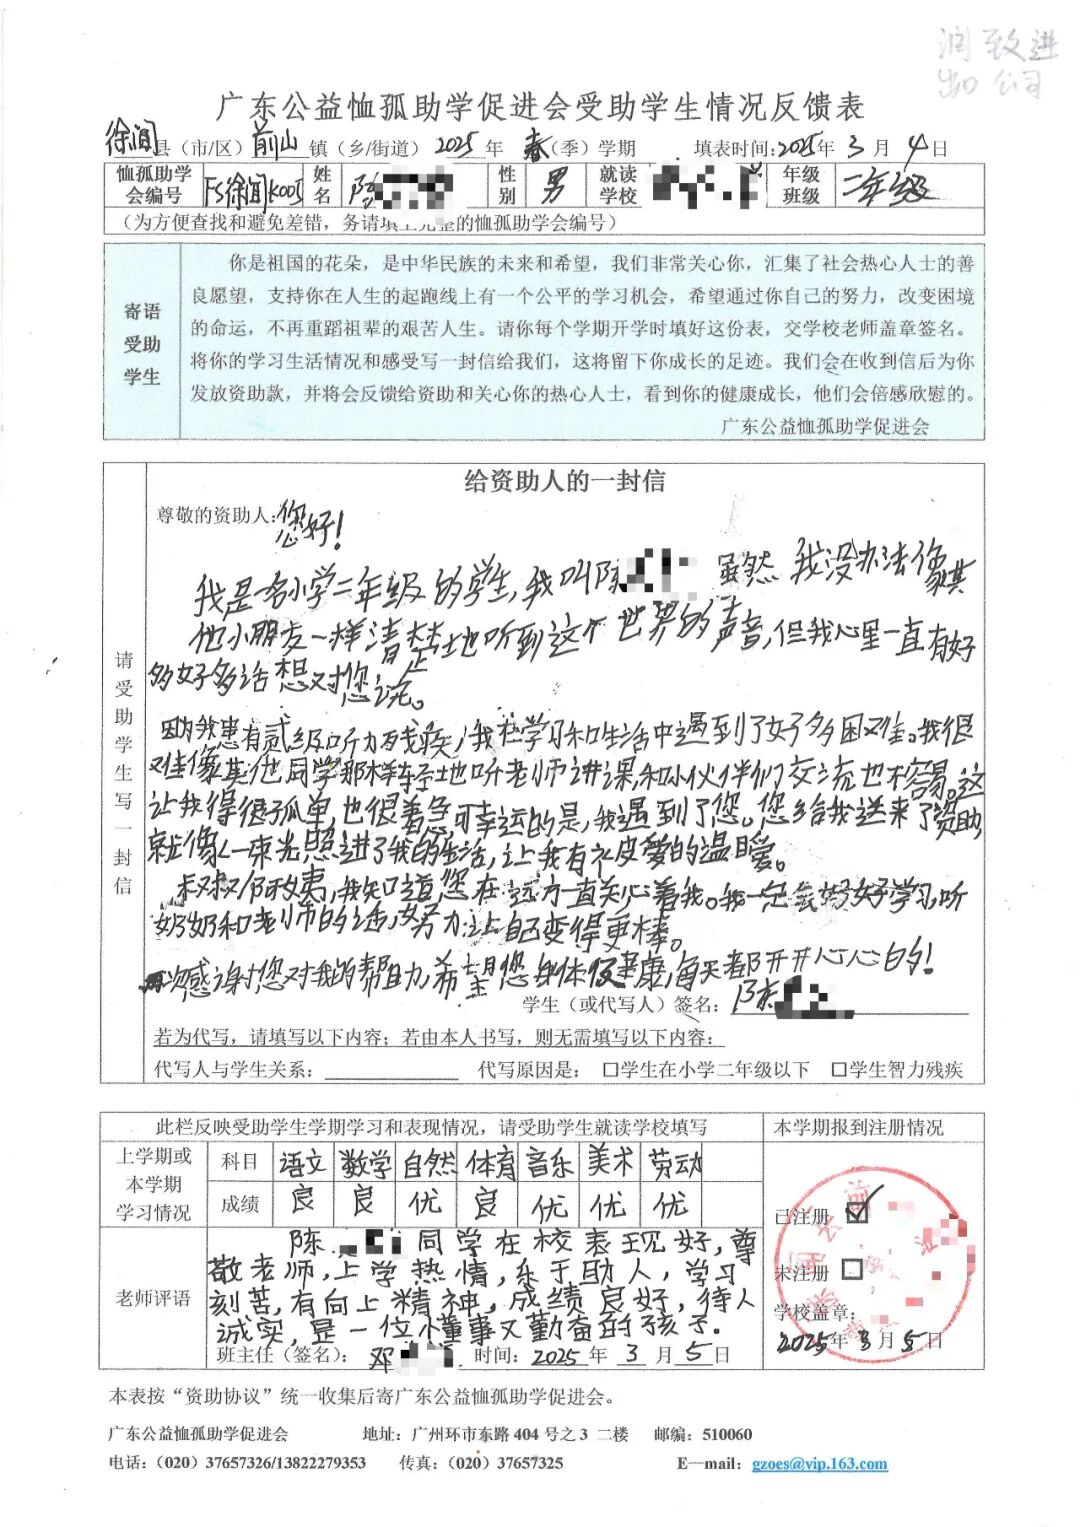 润致进
出口公司
广东公益恤孤助学促进会受助学生情况反馈表
徐闻县（市/区）前山镇（乡/街道）2025年 春（季）学期 填表时间:2025年3月4日
恤孤助学会编号 FS徐闻K005 姓名 陈 性别 男 就读学校 年级班级 二年级
（为方便查找和避免差错，务请填上完整的恤孤助学会编号）
寄语受助学生
你是祖国的花朵，是中华民族的未来和希望，我们非常关心你，汇集了社会热心人士的善
良愿望，支持你在人生的起跑线上有一个公平的学习机会，希望通过你自己的努力，改变困境
的命运，不再重蹈祖辈的艰苦人生。请你每个学期开学时填好这份表，交学校老师盖章签名。
将你的学习生活情况和感受写一封信给我们，这将留下你成长的足迹。我们会在收到信后为你
发放资助款，并将会反馈给资助和关心你的热心人士，看到你的健康成长，他们会倍感欣慰的。
广东公益恤孤助学促进会
请受助学生写一封信
给资助人的一封信
尊敬的资助人:您好!
我是名小学二年级的学生,我叫陈 虽然我没办法像其
他小朋友一样清楚地听到这个世界的声音,但我心里一直有好
多好多话想对您说。
因为我患有贰级听力残疾,我在学习和生活中遇到了好多困难。我很
难像其他同学那样轻地听老师讲课,和小伙伴们交流也不容易。这
让我得很孤单,也很着急,可幸运的是,我遇到了您。您给我送来了资助,
就像一束光照进了我的生活,让我有被爱的温暖。
叔叔阿姨,我知道,您在远方一直关心着我。我一定会好好学习,听
奶奶和老师的话,努力让自己变得更棒。
再次感谢您对我的帮助,希望您身体健康,每天都开开心心的!
学生（或代写人）签名: 陈
若为代写，请填写以下内容；若由本人书写，则无需填写以下内容:
代写人与学生关系: 代写原因是: □学生在小学二年级以下 □学生智力残疾
此栏反映受助学生学期学习和表现情况，请受助学生就读学校填写 本学期报到注册情况
上学期或本学期学习情况
科目 语文 数学 自然 体育 音乐 美术 劳动
成绩 良 良 优 良 优 优 优
已注册 ☑
未注册 □
学校盖章:
2025年3月5日
老师评语
陈 同学在校表现好,尊
敬老师,上学热情,乐于助人,学习
刻苦,有向上精神,成绩良好,待人
诚实,是一位懂事又勤奋的孩子.
班主任（签名）: 邓 时间: 2025年3月5日
本表按“资助协议”统一收集后寄广东公益恤孤助学促进会。
广东公益恤孤助学促进会 地址: 广州环市东路404号之3 二楼 邮编: 510060
电话:（020）37657326/13822279353 传真:（020）37657325 E—mail: gzoes@vip.163.com